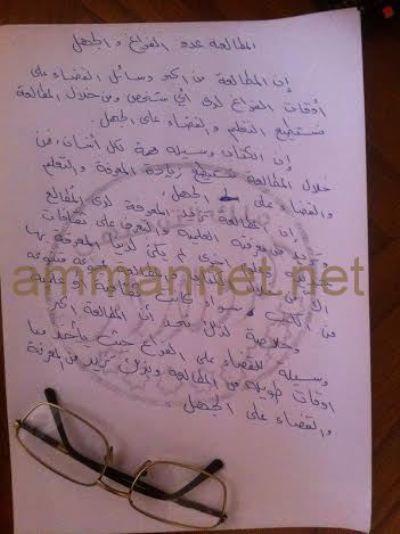 المطالعة عدو الفراغ والجهل
إن المطالعة من أكبر وسائل القضاء على
أوقات الفراغ لدى أي شخص ومن خلال المطالعة
نستطيع التعلم والقضاء على الجهل.
إن الكتاب وسيلة همة لكل انسان، فمن
خلال المطالعة نستطيع زيادة المعرفة والتعلم
والقضاء على الجهل.
إن المطالعة تزيد المعرفة لدى المطالع
وتزيد من معرفته العلمية والتعرف على ثقافات
جديدة اخرى لم يكن لدينا المعرفة بها
من خلال المطالعة متنوعة
من الكتب سواء كانت ثقافية او علمية
وخلاصة لذلك نجد أن المطالعة اكبر
وسيلة للقضاء على الفراغ حيث يأخذ منا
اوقات طويلة من المطالعة وبذلك نزيد من المعرفة
والقضاء على الجهل.
ammannet.net